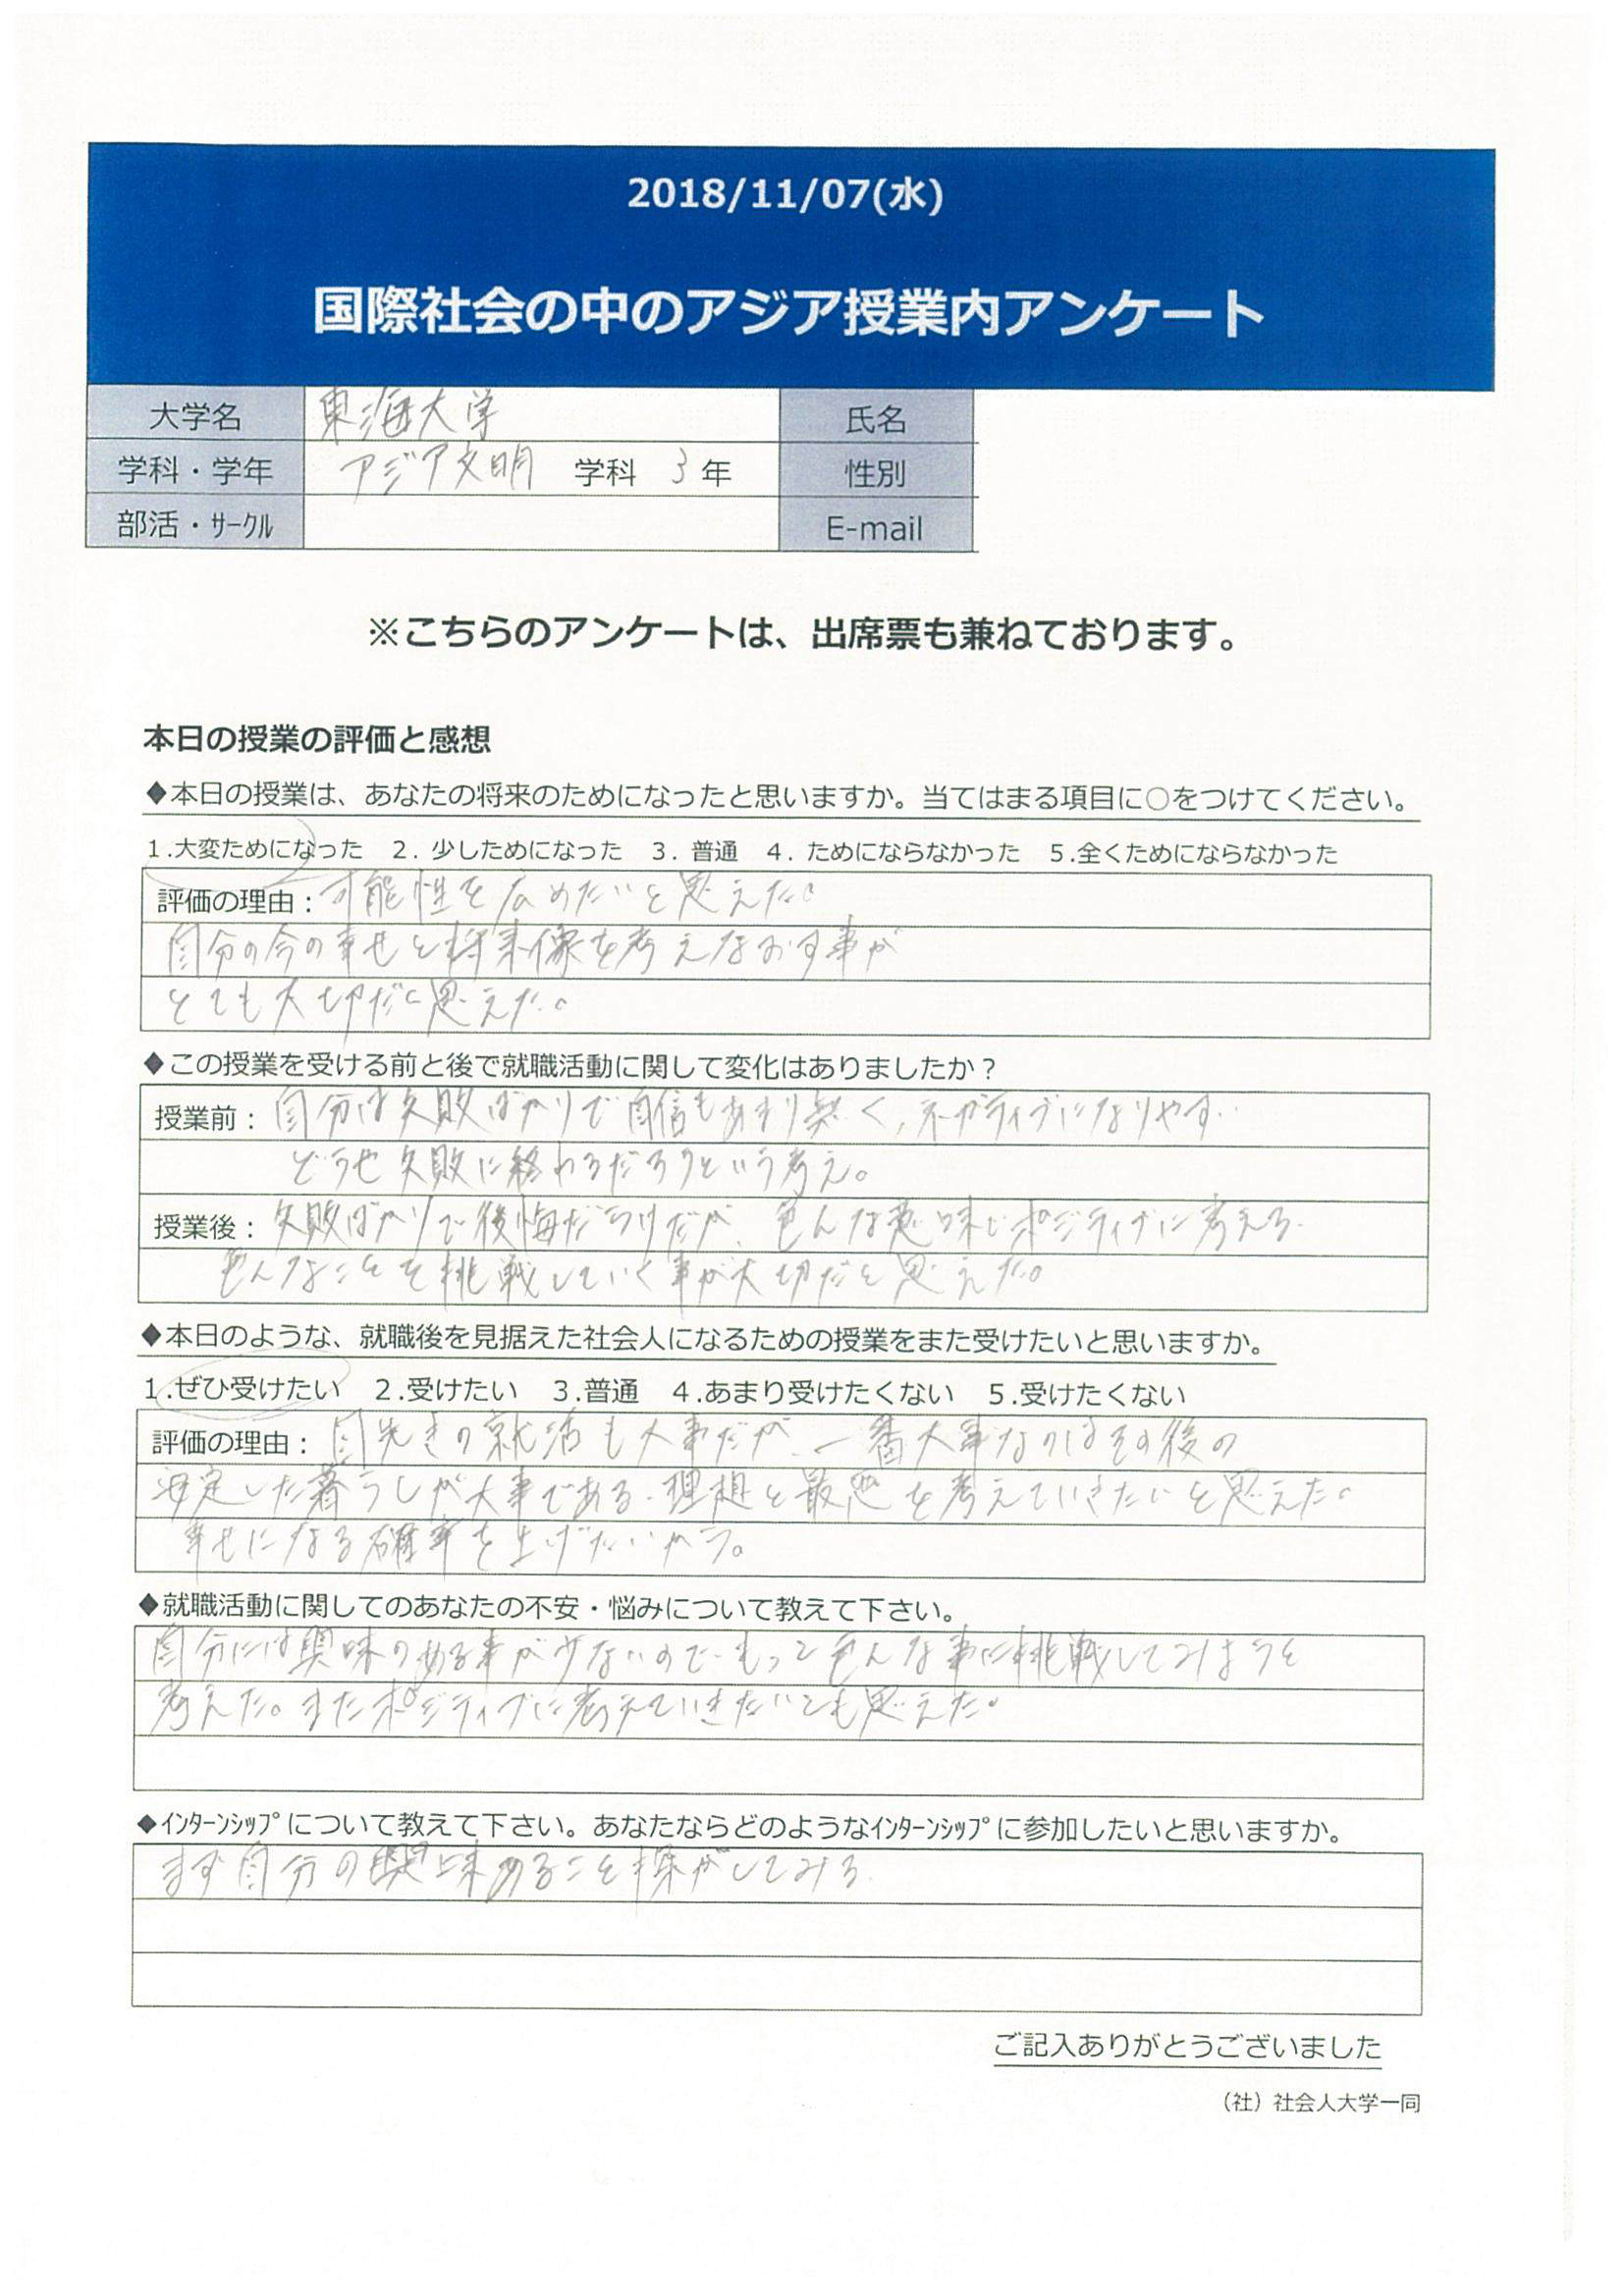 2018/11/07(水)
国際社会の中のアジア授業内アンケート
大学名 東海大学 氏名
学科・学年 アジア文明 学科 3 年 性別
部活・ｻｰｸﾙ E-mail
※こちらのアンケートは、出席票も兼ねております。
本日の授業の評価と感想
◆本日の授業は、あなたの将来のためになったと思いますか。当てはまる項目に○をつけてください。
1.大変ためになった 2. 少しためになった 3. 普通 4. ためにならなかった 5.全くためにならなかった
評価の理由：可能性を広めたいと思えた。
自分の今の幸せと将来像を考えなおす事が
とても大切だと思えた。
◆この授業を受ける前と後で就職活動に関して変化はありましたか？
授業前：自分は失敗ばかりで自信もあまり無く、ネガティブになりやす
どうせ失敗に終わるだろうという考え。
授業後：失敗ばかりで後悔だらけだが、色んな意味でポジティブに考える
色んなことを挑戦していく事が大切だと思えた。
◆本日のような、就職後を見据えた社会人になるための授業をまた受けたいと思いますか。
1.ぜひ受けたい 2.受けたい 3.普通 4.あまり受けたくない 5.受けたくない
評価の理由：目先きの就活も大事だが、一番大事なのはその後の
安定した暮らしが大事である。理想と最悪を考えていきたいと思えた。
幸せになる確率を上げたいから。
◆就職活動に関してのあなたの不安・悩みについて教えて下さい。
自分には興味のある事が少ないので、もっと色んな事に挑戦してみようと
考えた。またポジティブに考えていきたいとも思えた。
◆ｲﾝﾀｰﾝｼｯﾌﾟについて教えて下さい。あなたならどのようなｲﾝﾀｰﾝｼｯﾌﾟに参加したいと思いますか。
まず自分の興味あることを探がしてみる
ご記入ありがとうございました
（社）社会人大学一同